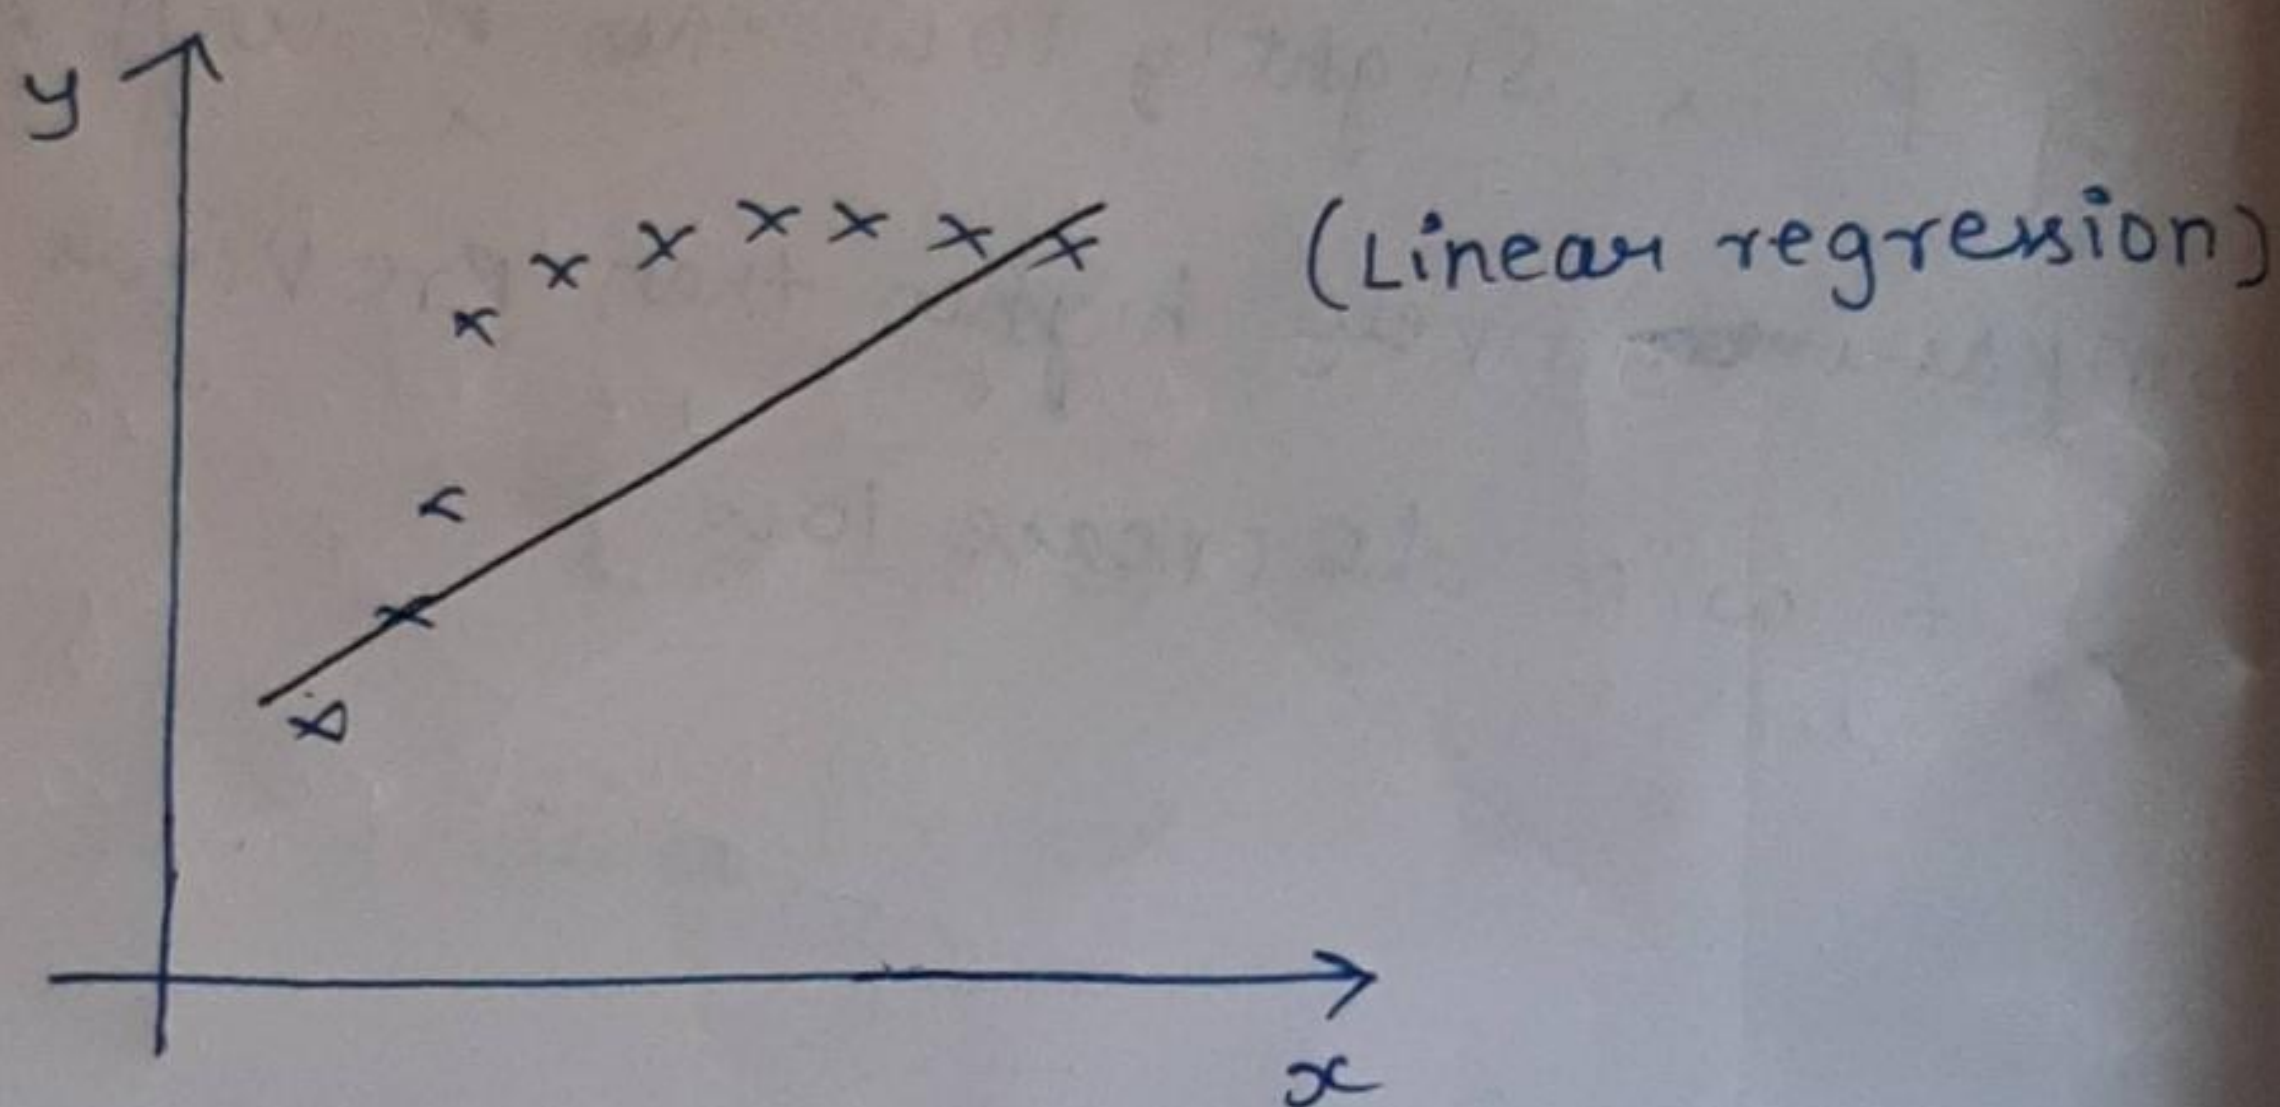 y
(Linear regression)
x